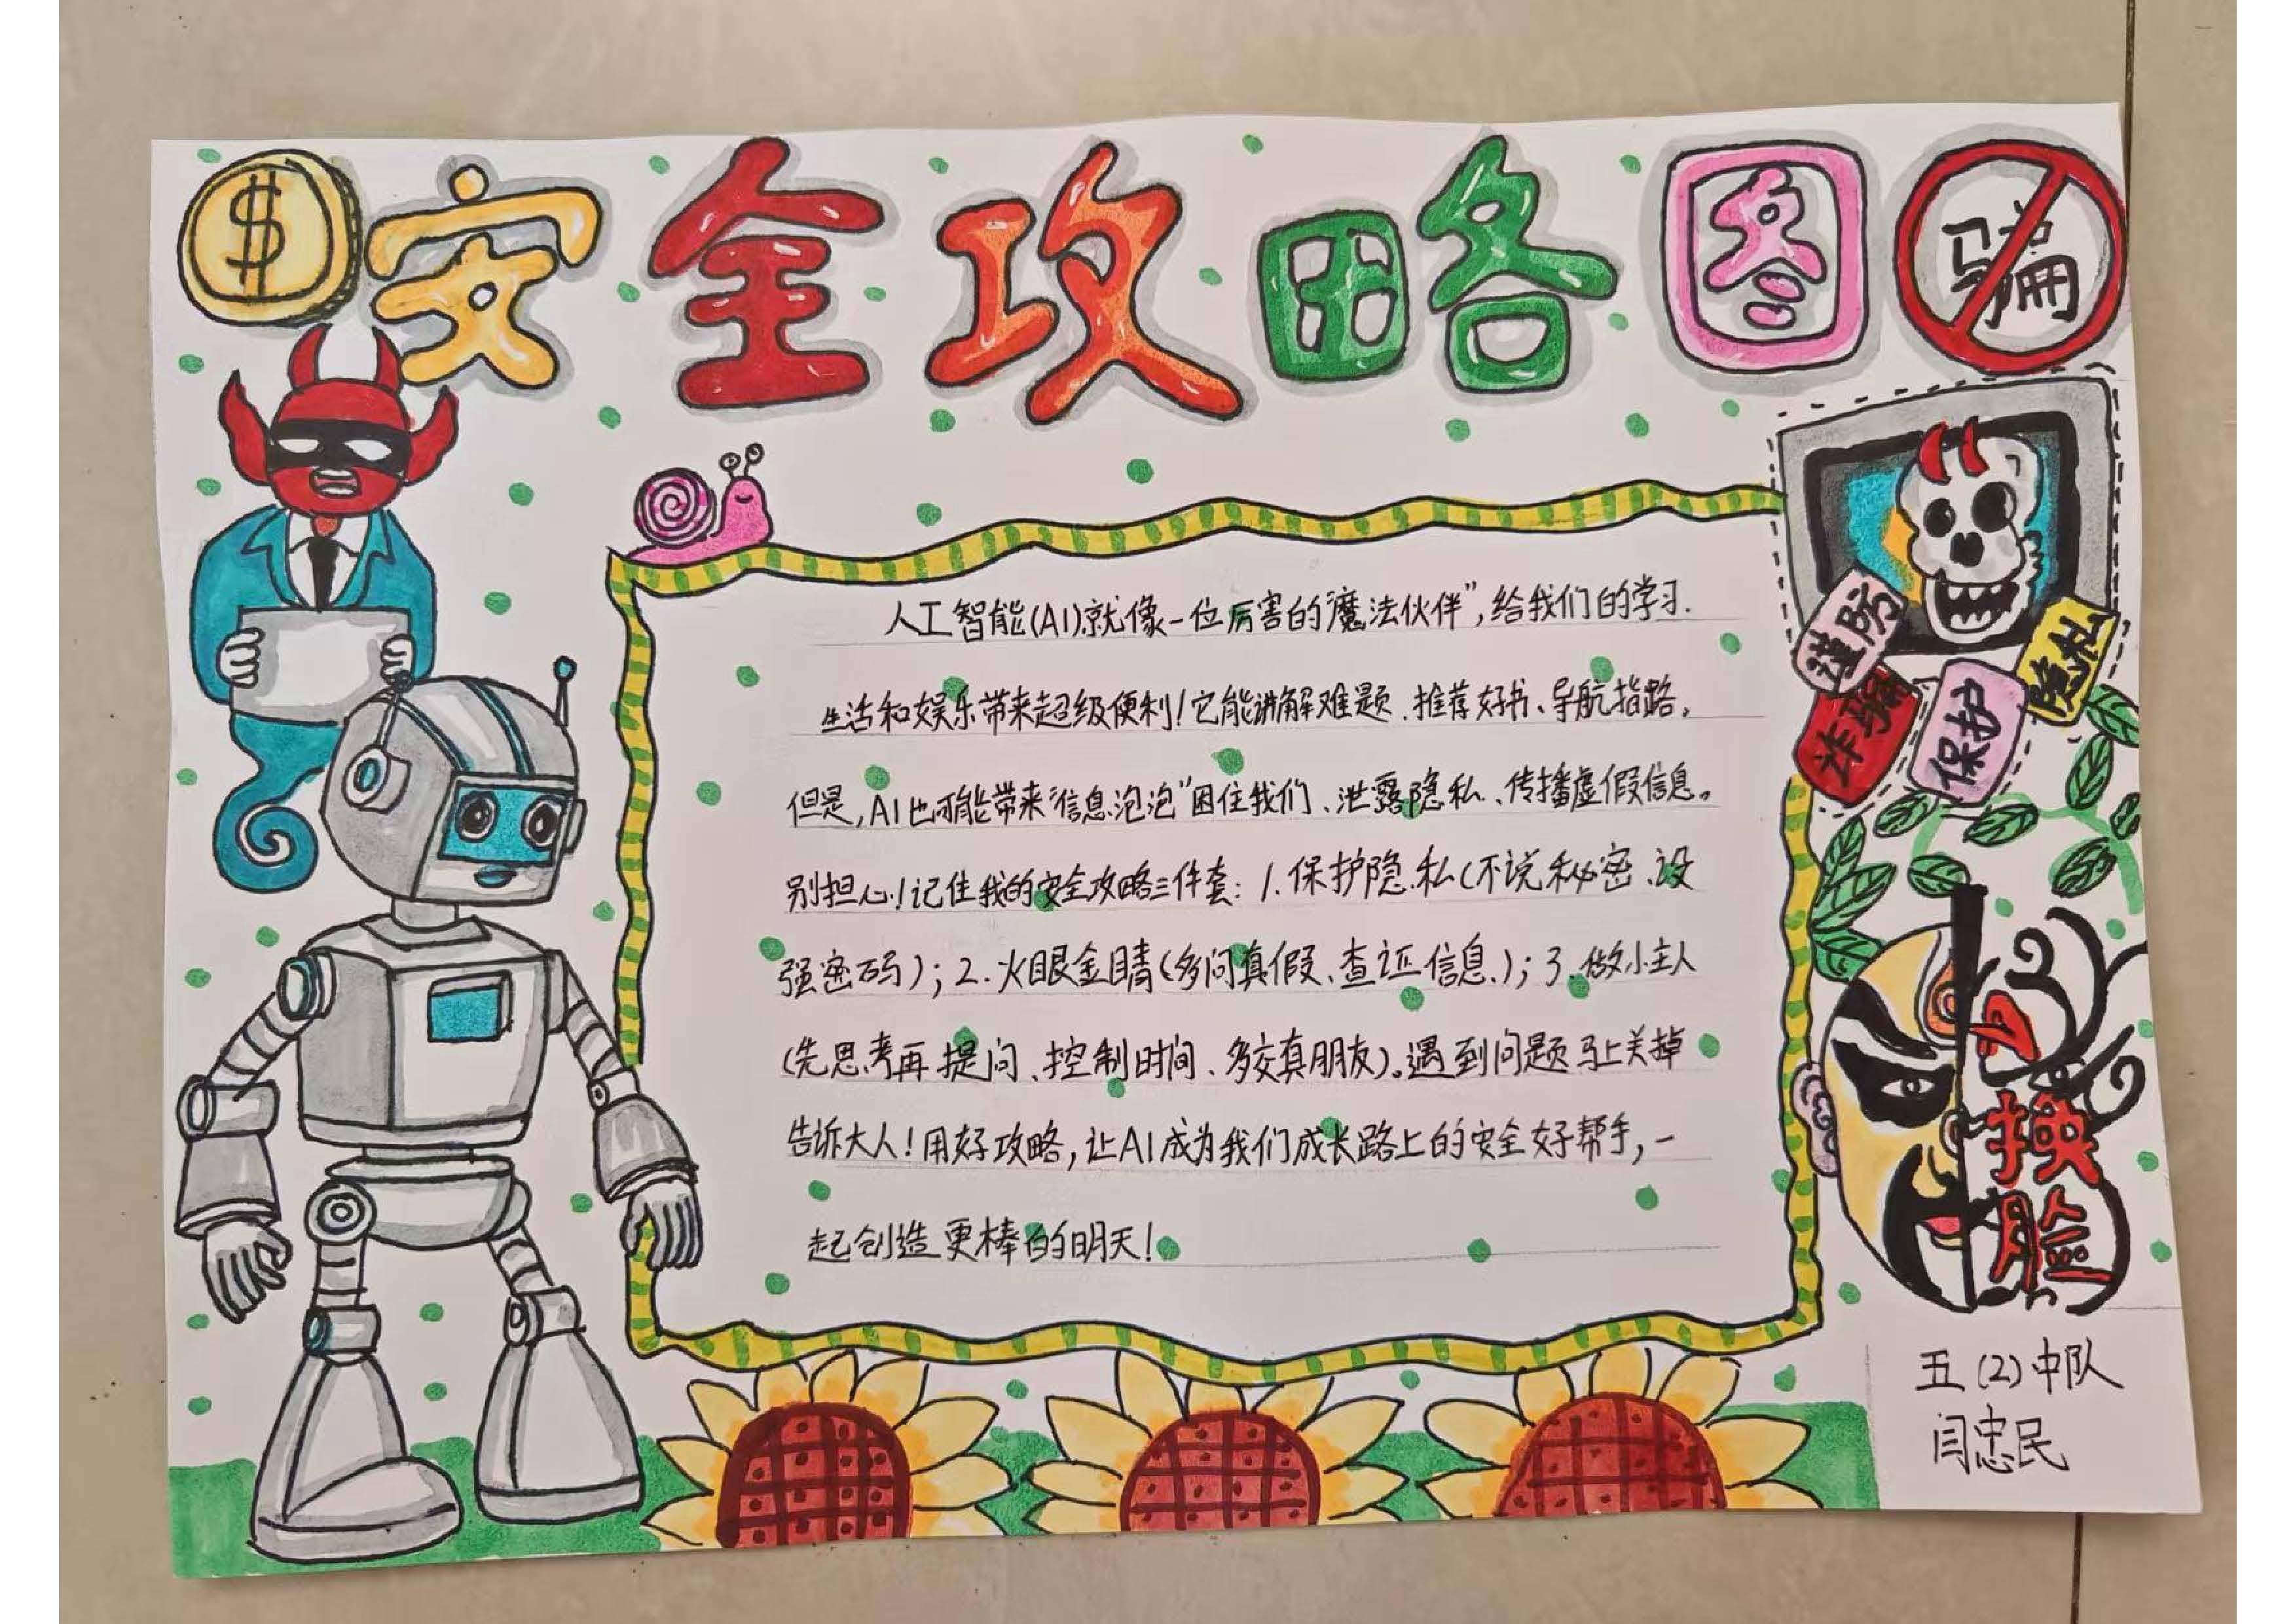 安全攻略图
骗
人工智能(AI)就像一位厉害的“魔法伙伴”,给我们的学习.
生活和娱乐带来超级便利!它能讲解难题、推荐好书、导航指路。
但是,AI也可能带来“信息泡泡”困住我们、泄露隐私、传播虚假信息。
别担心!记住我的安全攻略三件套:1.保护隐私(不说秘密、设
强密码);2.火眼金睛(多问真假、查证信息);3.做小主人
(先思考再提问、控制时间、多交真朋友)。遇到问题马上关掉
告诉大人!用好攻略,让AI成为我们成长路上的安全好帮手,一
起创造更棒的明天!
谨防
诈骗
保护
隐私
换脸
五(2)中队
闫忠民